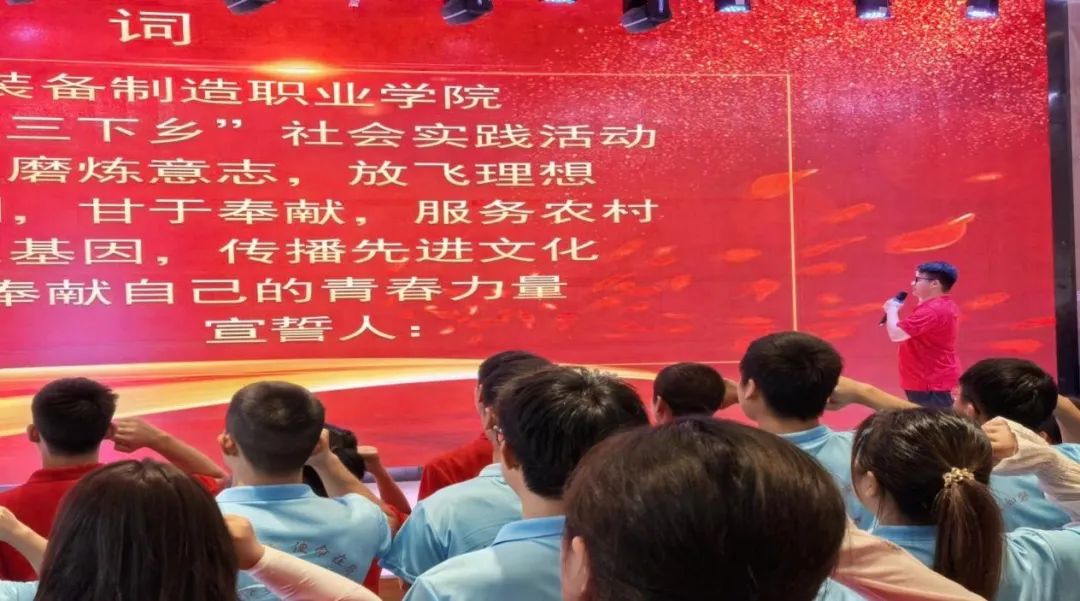 词
装备制造职业学院
三下乡”社会实践活动
磨炼意志，放飞理想
，甘于奉献，服务农村
基因，传播先进文化
奉献自己的青春力量
宣誓人：